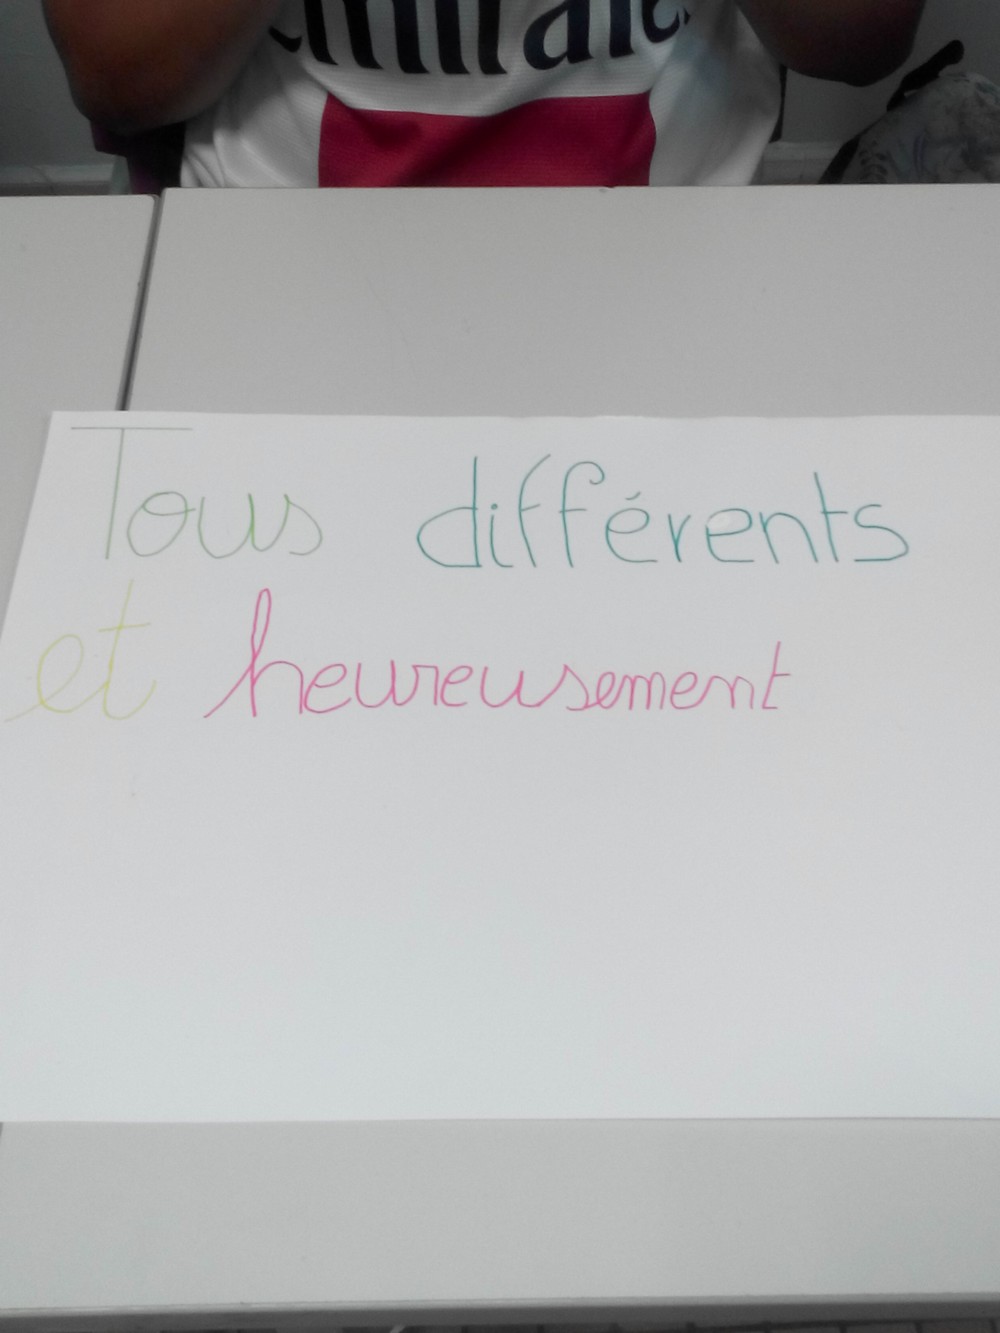 Tous différents
et heureusement